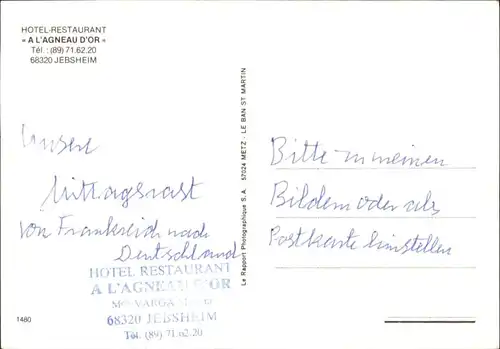 HOTEL-RESTAURANT
« A L'AGNEAU D'OR »
Tél. : (89) 71.62.20
68320 JEBSHEIM
Unsere
Mittagsrast
von Frankreich nach
Deutschland
HOTEL RESTAURANT
A L'AGNEAU D'OR
68320 JEBSHEIM
Tél. (89) 71.62.20
1480
Le Rapport Phonographique S.A. 57024 METZ - LE BAN ST MARTIN
Bitte zu meinen
Bildern oder als
Postkarte hinstellen